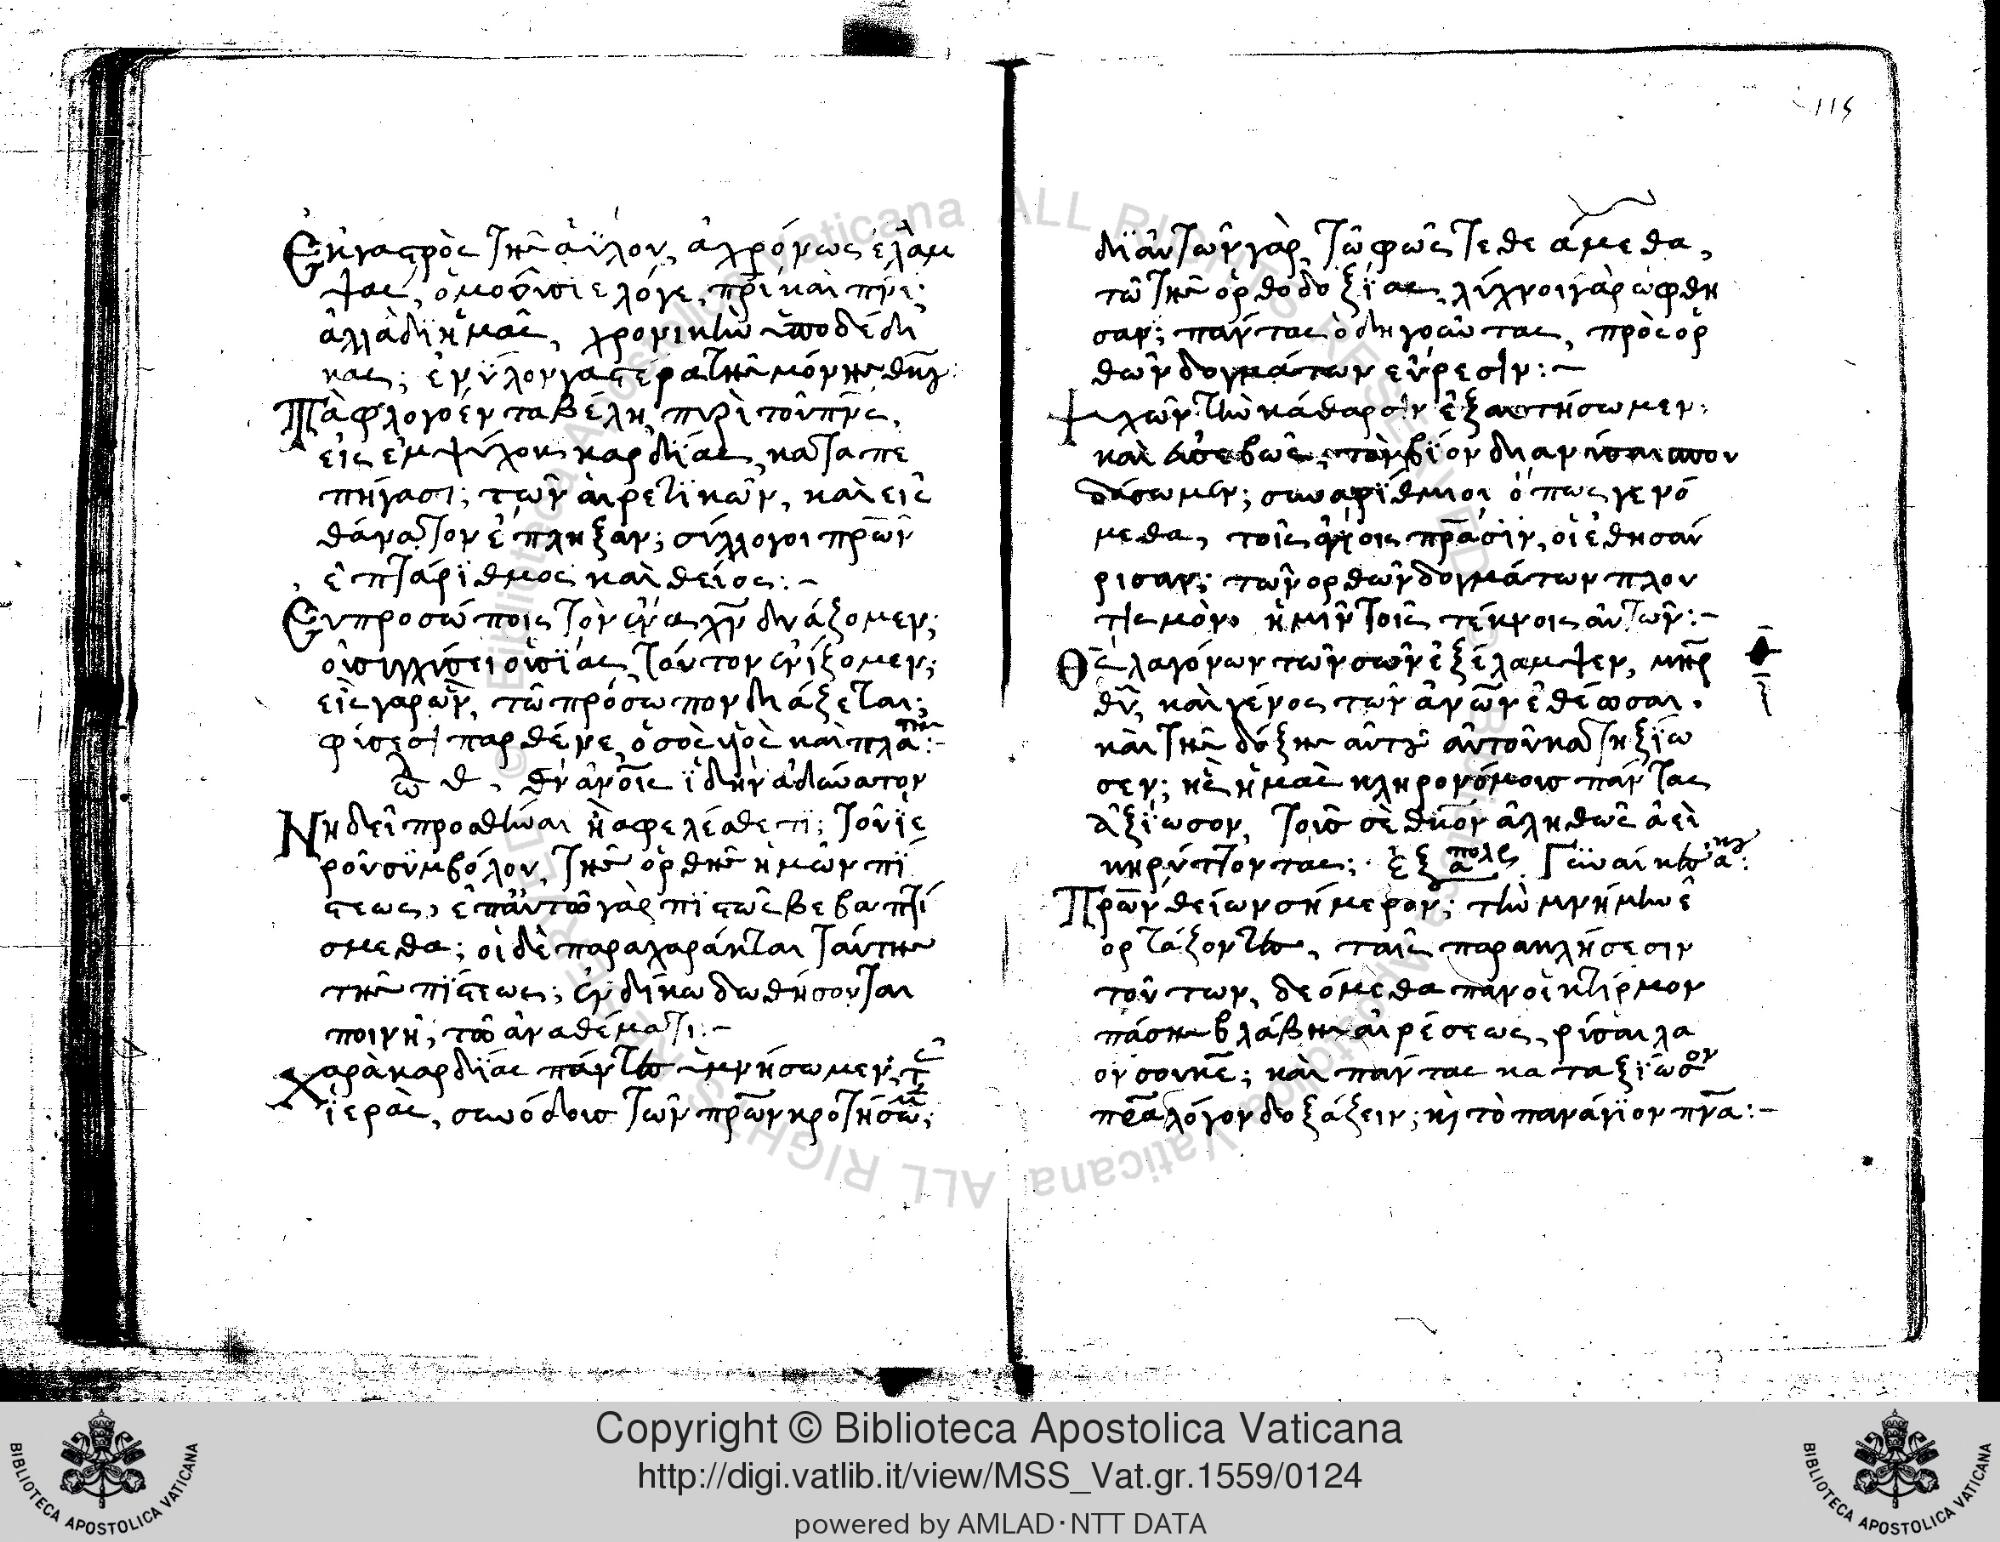 Ἐκ γαστρὸς τῆς ἀΰλου, ἀχρόνως ἐλαμ
ψας, ὁμοούσιε λόγε, πρὶ καὶ πνι;
ἀλλὰ δι ἡμᾶς, χρονικὴν ὑποδέδυ
κας; ἐν ὕλον γαστέρα τῆς μόνης θκου:
Τὰ φλογόεντα βέλη, πυρὶ τοῦ πνς,
εἰς ἐμψύχους καρδίας, καταπε
πήγασι; τῶν αἱρετικῶν, καὶ εἰς
θάνατον ἔπληξαν; σύλλογοι πρων
ἑπτάριθμος καὶ θεῖος:-
Ἐν προσώποις τὸν ἕνα χν δυάζομεν;
οὐ συγχύσει οὐσίας ταύτον ἑνίζομεν;
εἷς γὰρ ὢν, τῶ πρόσωπον διάζεται;
φύσεσι παρθένε, ὁ σὸς υἱὸς καὶ πλάστης:-
ὠδ θ. θν ἀνοις ἰδεῖν ἀδύνατον
Νὴ δεῖ προσθῆναι ἢ ἀφελέσθε τι; τοῦ ἱε
ροῦ συμβόλου, τῆς ὀρθῆς ἡμῶν πί
στεως, ἐπ αὐτῶ γὰρ πιστῶς βεβαπτί
σμεθα; οἱ δὲ παραχαράκται ταύτης
τῆς πίστεως; ἐνδίκω δωθήσονται
ποινῆ; τοῦ ἀναθέματι:-
Χαρὰ καρδίας πάντες ὑμνήσωμεν, τς
ἱερὰς, συνόδους τῶν πρων κροτήσωμ;
115
δι αὐτῶν γὰρ, τῶ φῶς τεθεάμεθα,
τῶ τῆς ὀρθοδοξίας, λύχνοι γὰρ ὤφθη
σαν; πάντας ὁδηγοῦντας, πρὸς ὀρ
θῶν δογμάτων εὕρεσιν:-
Ψυχῶν τὴν κάθαρσιν ἐξαιτήσωμεν;
καὶ εὐσεβῶς, τὸν βίον διανύσαι σπου
δάσωμεν; συναρίθμιοι ὅπως γενό
μεθα, τοῖς ἁγίοις πράσιν, οἳ ἐθησαύ
ρισαν; τῶν ὀρθῶν δογμάτων πλου
τισμὸν ἡμῖν τοῖς τέκνοις αὐτῶν:-
Θς λαγόνων τῶν σῶν ἐξέλαμψεν, μηρ
θυ, καὶ γένος τῶν ἀνων ἐθέωσαι.
καὶ τῆς δόξης αὐτοῦ αὐτοῦ κατηξίω
σεν; κὲ ἡμᾶς κληρονόμους πάντας
ἀξίωσον, τοὺς σὲ θκον ἀληθῶς ἀεὶ
κηρύττοντας; ἐξαπολς. Γυναίκες ἀκ:
Πρων θείων σήμερον; τὴν μνήμην ἑ
ορτάζοντες, ταῖς παρακλήσεσιν
τούτων, δεόμεθα πανοικτίρμον
πάσης βλάβης αἱρέσεως, ρύσαι λα
ὸν σου κε; καὶ πάντας καταξίωσον
πρα λόγον δοξάζειν; κὶ τὸ πανάγιον πνα:-
Copyright © Biblioteca Apostolica Vaticana
http://digi.vatlib.it/view/MSS_Vat.gr.1559/0124
powered by AMLAD·NTT DATA
BIBLIOTECA APOSTOLICA VATICANA
BIBLIOTECA APOSTOLICA VATICANA